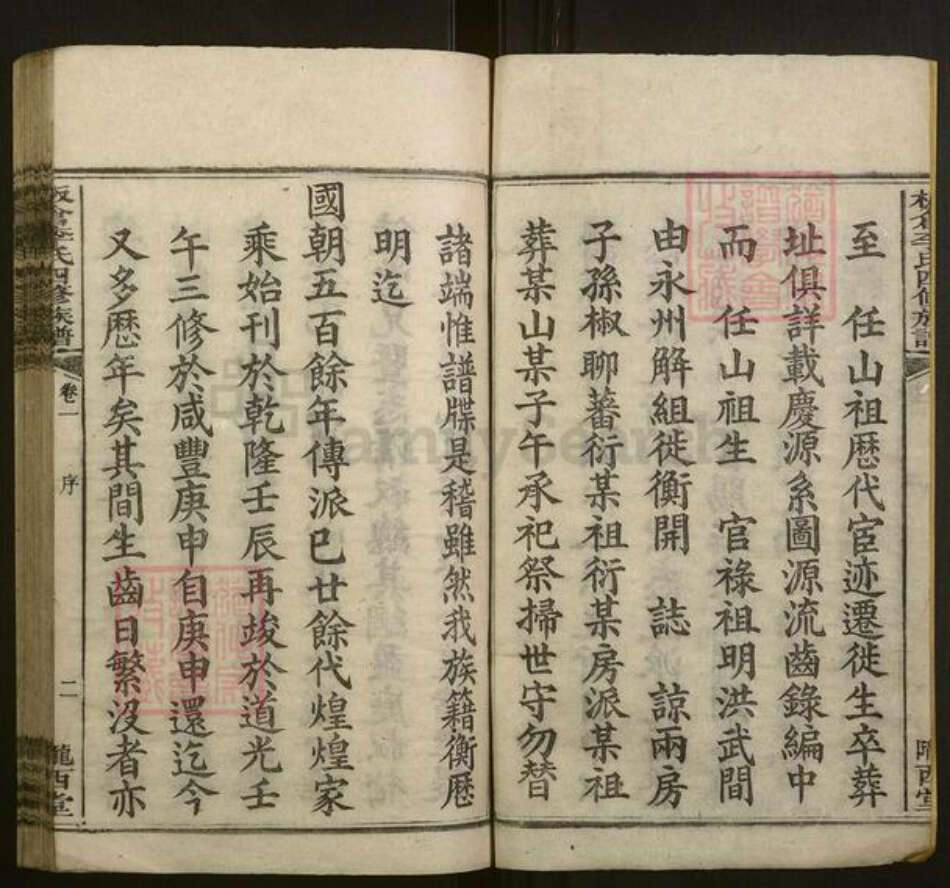 至　任山祖歴代宦迹遷徙生卒葬
址俱詳載慶源系圖源流齒錄編中
而　任山祖生　官祿祖明洪武間
由永州解組徙衡開　誌　諒兩房
子孫椒聊蕃衍某祖衍某房派某祖
葬某山某子午承祀祭掃世守勿替
諸端惟譜牒是稽雖然我族籍衡歷
明迄
國朝五百餘年傳派已廿餘代煌煌家
乘始刊於乾隆壬辰再竣於道光壬
午三修於咸豐庚申自庚申還迄今
又多歷年矣其間生齒日繁沒者亦
李氏四修族譜
卷一
序
二
隴西堂